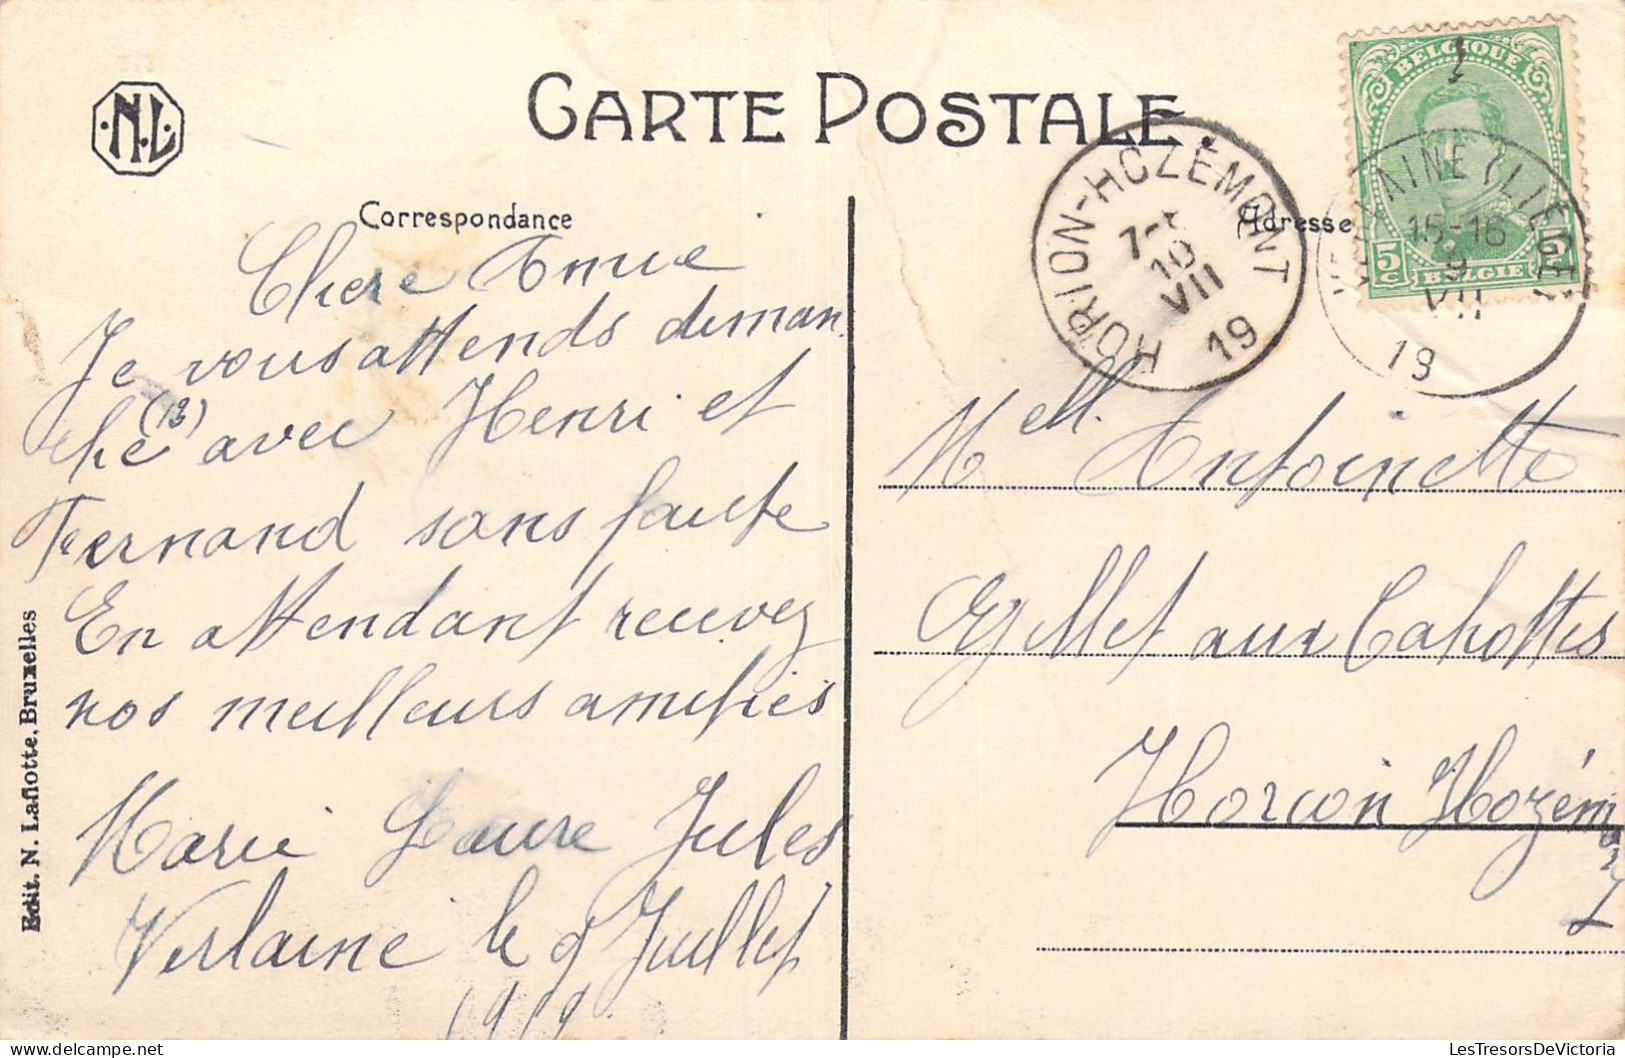 N.L.
CARTE POSTALE
Correspondance
Adresse
BELGIQUE
5c 5c
BELGIË
HORION-HOZÉMONT
10
VII
19
VERLAINE (LIÈGE)
15-16
9
VII
19
Chere Amie
Je vous attends diman
che (13) avec Henri et
Fernand sans faute
En attendant recevez
nos meilleurs amitiés
Marie Laure Jules
Verlaine le 9 Juillet
1919
Mell. Antoinette
Gillet aux Cahottes
Horion Hozémont
Edit. N. Laflotte, Bruxelles
LesTresorsDeVictoria